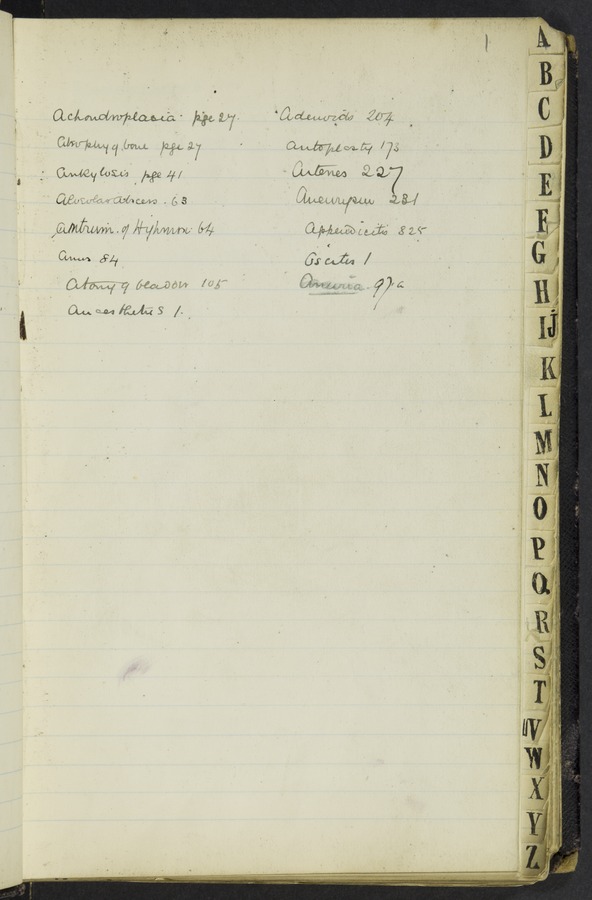 1
Achondroplasia page 27
Atrophy of bone pge 27
Ankylosis pge 41
Alveolar abscess. 63
Antrum of Highmore 64
Anus 84
Atony of bladder 105
Anaesthetics 1.
Adenoids 204
Autoplasty 173
Arteries 227
Aneurysm 231
Appendicitis 325
Ascites 1
Anuria 97a
A
B
C
D
E
F
G
H
IJ
K
L
M
N
O
P
Q
R
S
T
UV
W
X
Y
Z